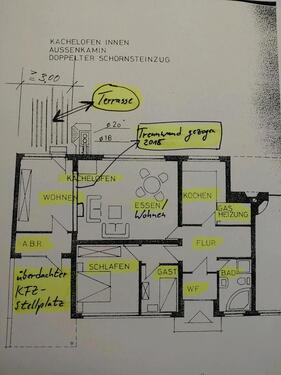 KACHELOFEN INNEN
AUSSENKAMIN
DOPPELTER SCHORNSTEINZUG
≥ 3,00
Terrasse
ø 20
ø 16
Trennwand gezogen
2015
KACHELOFEN
WOHNEN
ESSEN/
Wohnen
KOCHEN
GAS
HEIZUNG
A.B.R.
FLUR
SCHLAFEN
GAST
BAD
WF
überdachter
KFZ-
Stellplatz